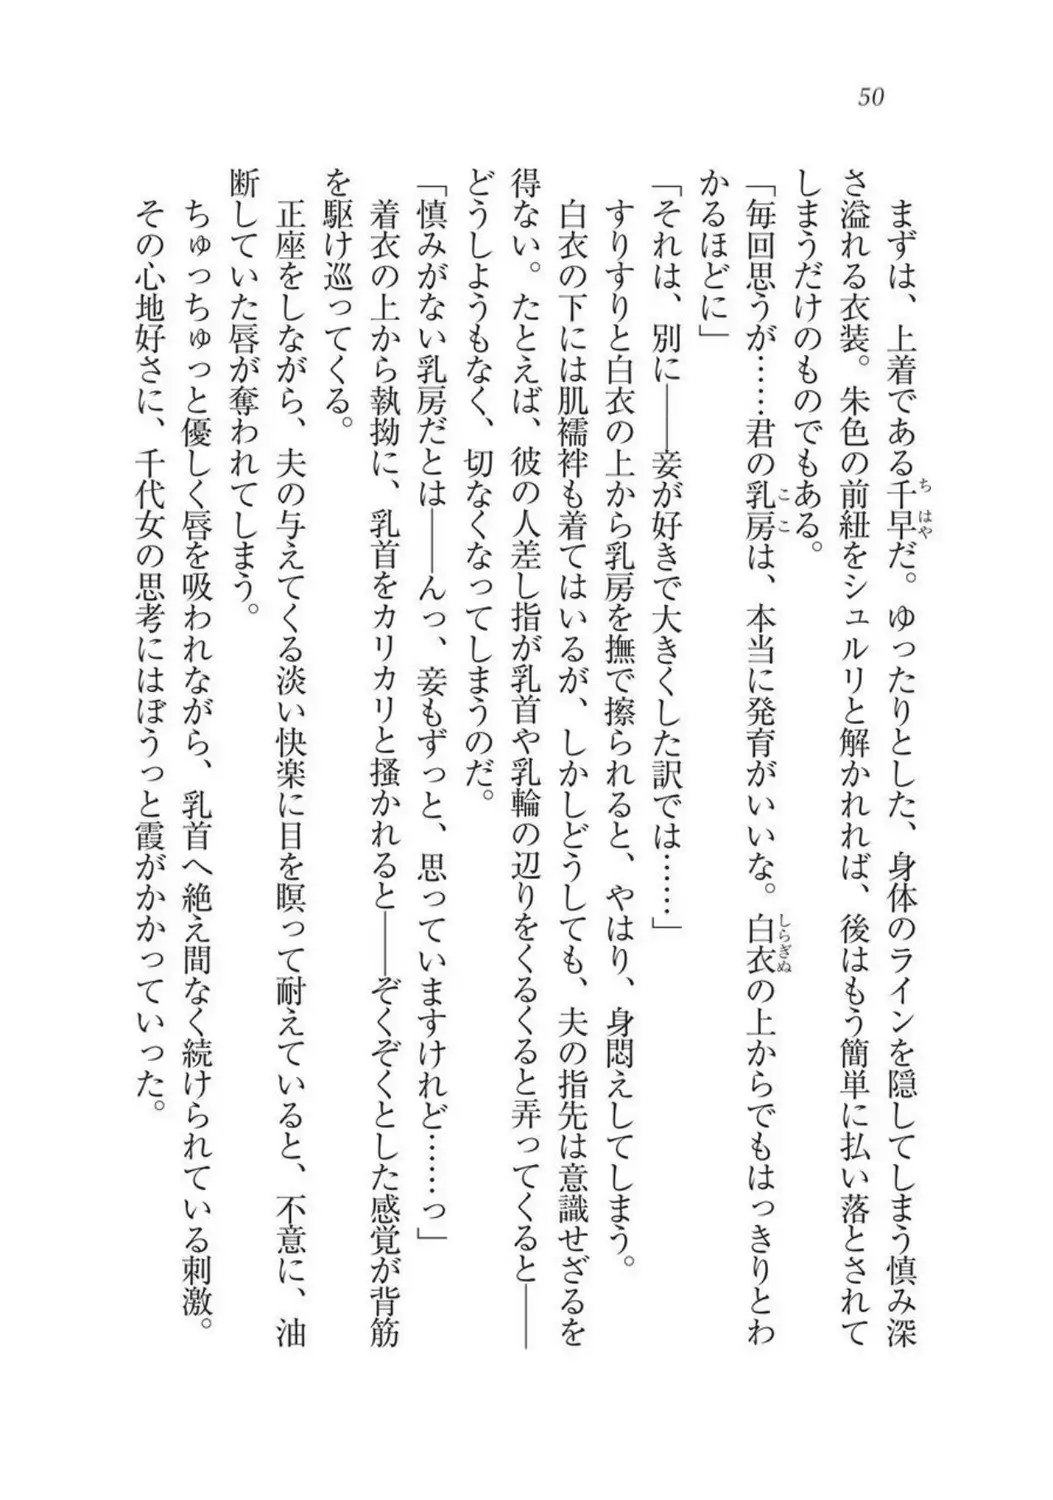 50
まずは、上着である千早だ。ゆったりとした、身体のラインを隠してしまう慎み深
さ溢れる衣装。朱色の前紐をシュルリと解かれれば、後はもう簡単に払い落とされて
しまうだけのものでもある。
「毎回思うが……君の乳房は、本当に発育がいいな。白衣の上からでもはっきりとわ
かるほどに」
「それは、別に――妾が好きで大きくした訳では……」
すりすりと白衣の上から乳房を撫で擦られると、やはり、身悶えしてしまう。
白衣の下には肌襦袢も着てはいるが、しかしどうしても、夫の指先は意識せざるを
得ない。たとえば、彼の人差し指が乳首や乳輪の辺りをくるくると弄ってくると――
どうしようもなく、切なくなってしまうのだ。
「慎みがない乳房だとは――んっ、妾もずっと、思っていますけれど……っ」
着衣の上から執拗に、乳首をカリカリと掻かれると――ぞくぞくとした感覚が背筋
を駆け巡ってくる。
正座をしながら、夫の与えてくる淡い快楽に目を瞑って耐えていると、不意に、油
断していた唇が奪われてしまう。
ちゅっちゅっと優しく唇を吸われながら、乳首へ絶え間なく続けられている刺激。
その心地好さに、千代女の思考にはぼうっと霞がかかっていった。
ちはや
ここ
しらぎぬ